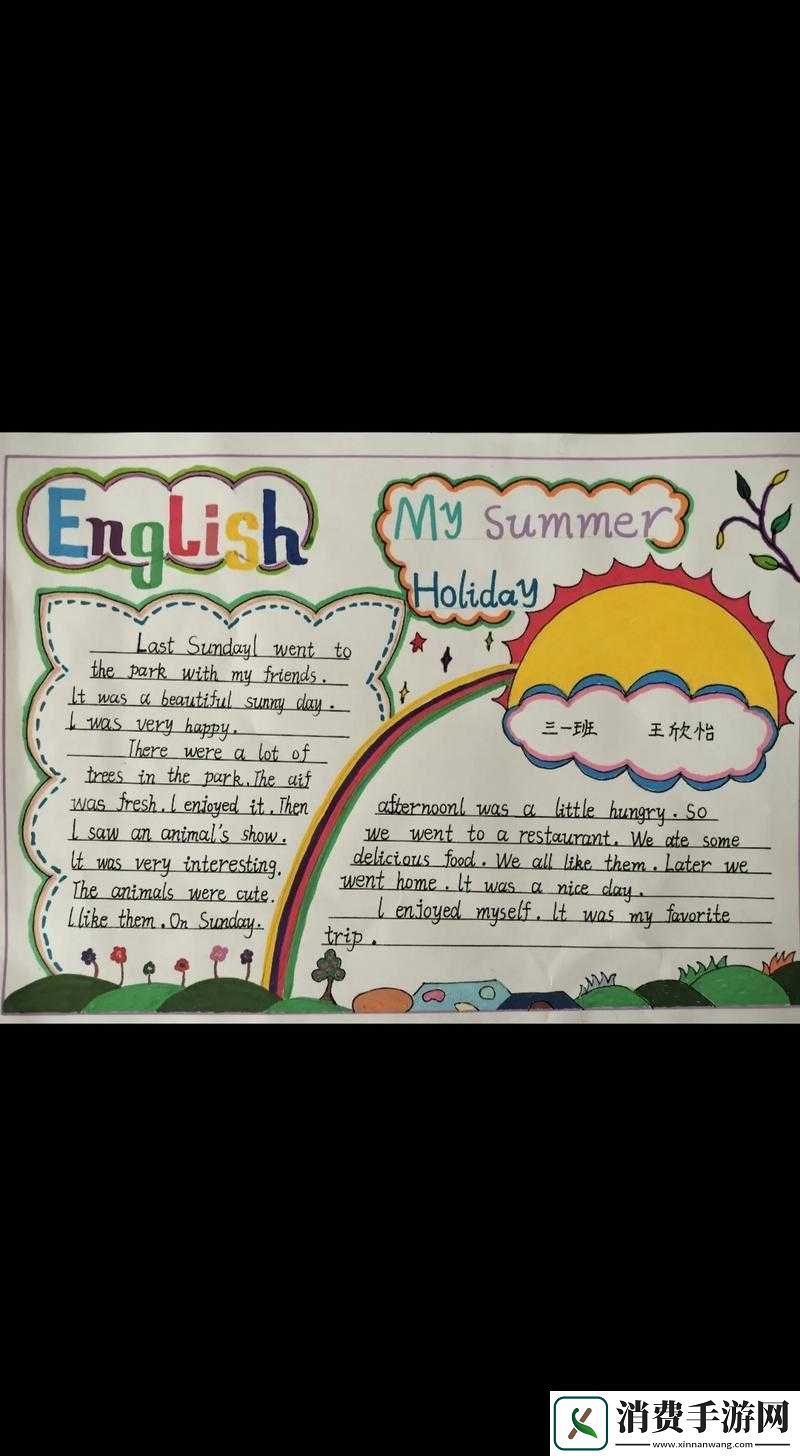 English
My Summer
Holiday
三一班 王欣怡
Last SundayI went to
the park with my friends.
It was a beautiful sunny day.
I was very happy.
There were a lot of
trees in the park. The air
was fresh. I enjoyed it. Then
I saw an animal's show.
It was very interesting.
The animals were cute.
I like them. On Sunday.
afternoonI was a little hungry. So
we went to a restaurant. We ate some
delicious food. We all like them. Later we
went home. It was a nice day.
I enjoyed myself. It was my favorite
trip.
消费手游网
www.xinnanwang.com